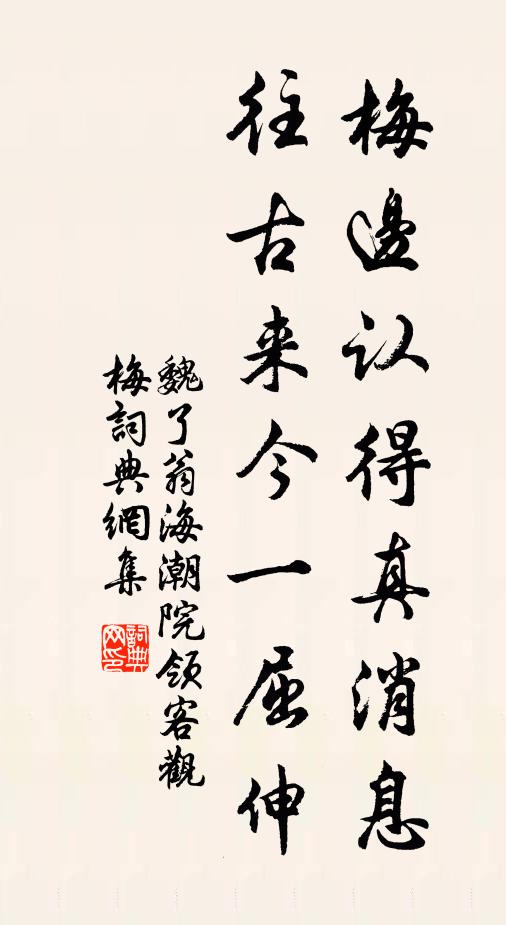 梅邊认得真消息
往古来今一屈伸
魏了翁海潮院领客觀
梅詞典網集
詞典
网印